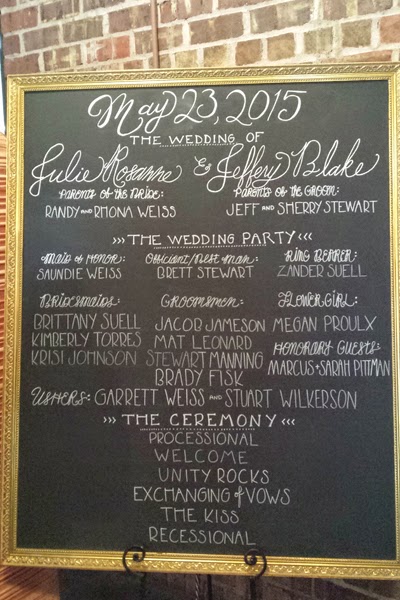 May 23, 2015
THE WEDDING OF
Julie Rosanne & Jeffery Blake
Parents of the Bride: Parents of the Groom:
RANDY AND RHONA WEISS JEFF AND SHERRY STEWART
>>> THE WEDDING PARTY <<<
Maid of Honor: Officiant/Best Man: Ring Bearer:
SAUNDIE WEISS BRETT STEWART ZANDER SUELL
Bridesmaids: Groomsmen: Flower Girl:
BRITTANY SUELL JACOB JAMESON MEGAN PROULX
KIMBERLY TORRES MAT LEONARD Honorary Guests:
KRISI JOHNSON STEWART MANNING MARCUS + SARAH PITTMAN
BRADY FISK
Ushers: GARRETT WEISS AND STUART WILKERSON
>>> THE CEREMONY <<<
PROCESSIONAL
WELCOME
UNITY ROCKS
EXCHANGING of VOWS
THE KISS
RECESSIONAL